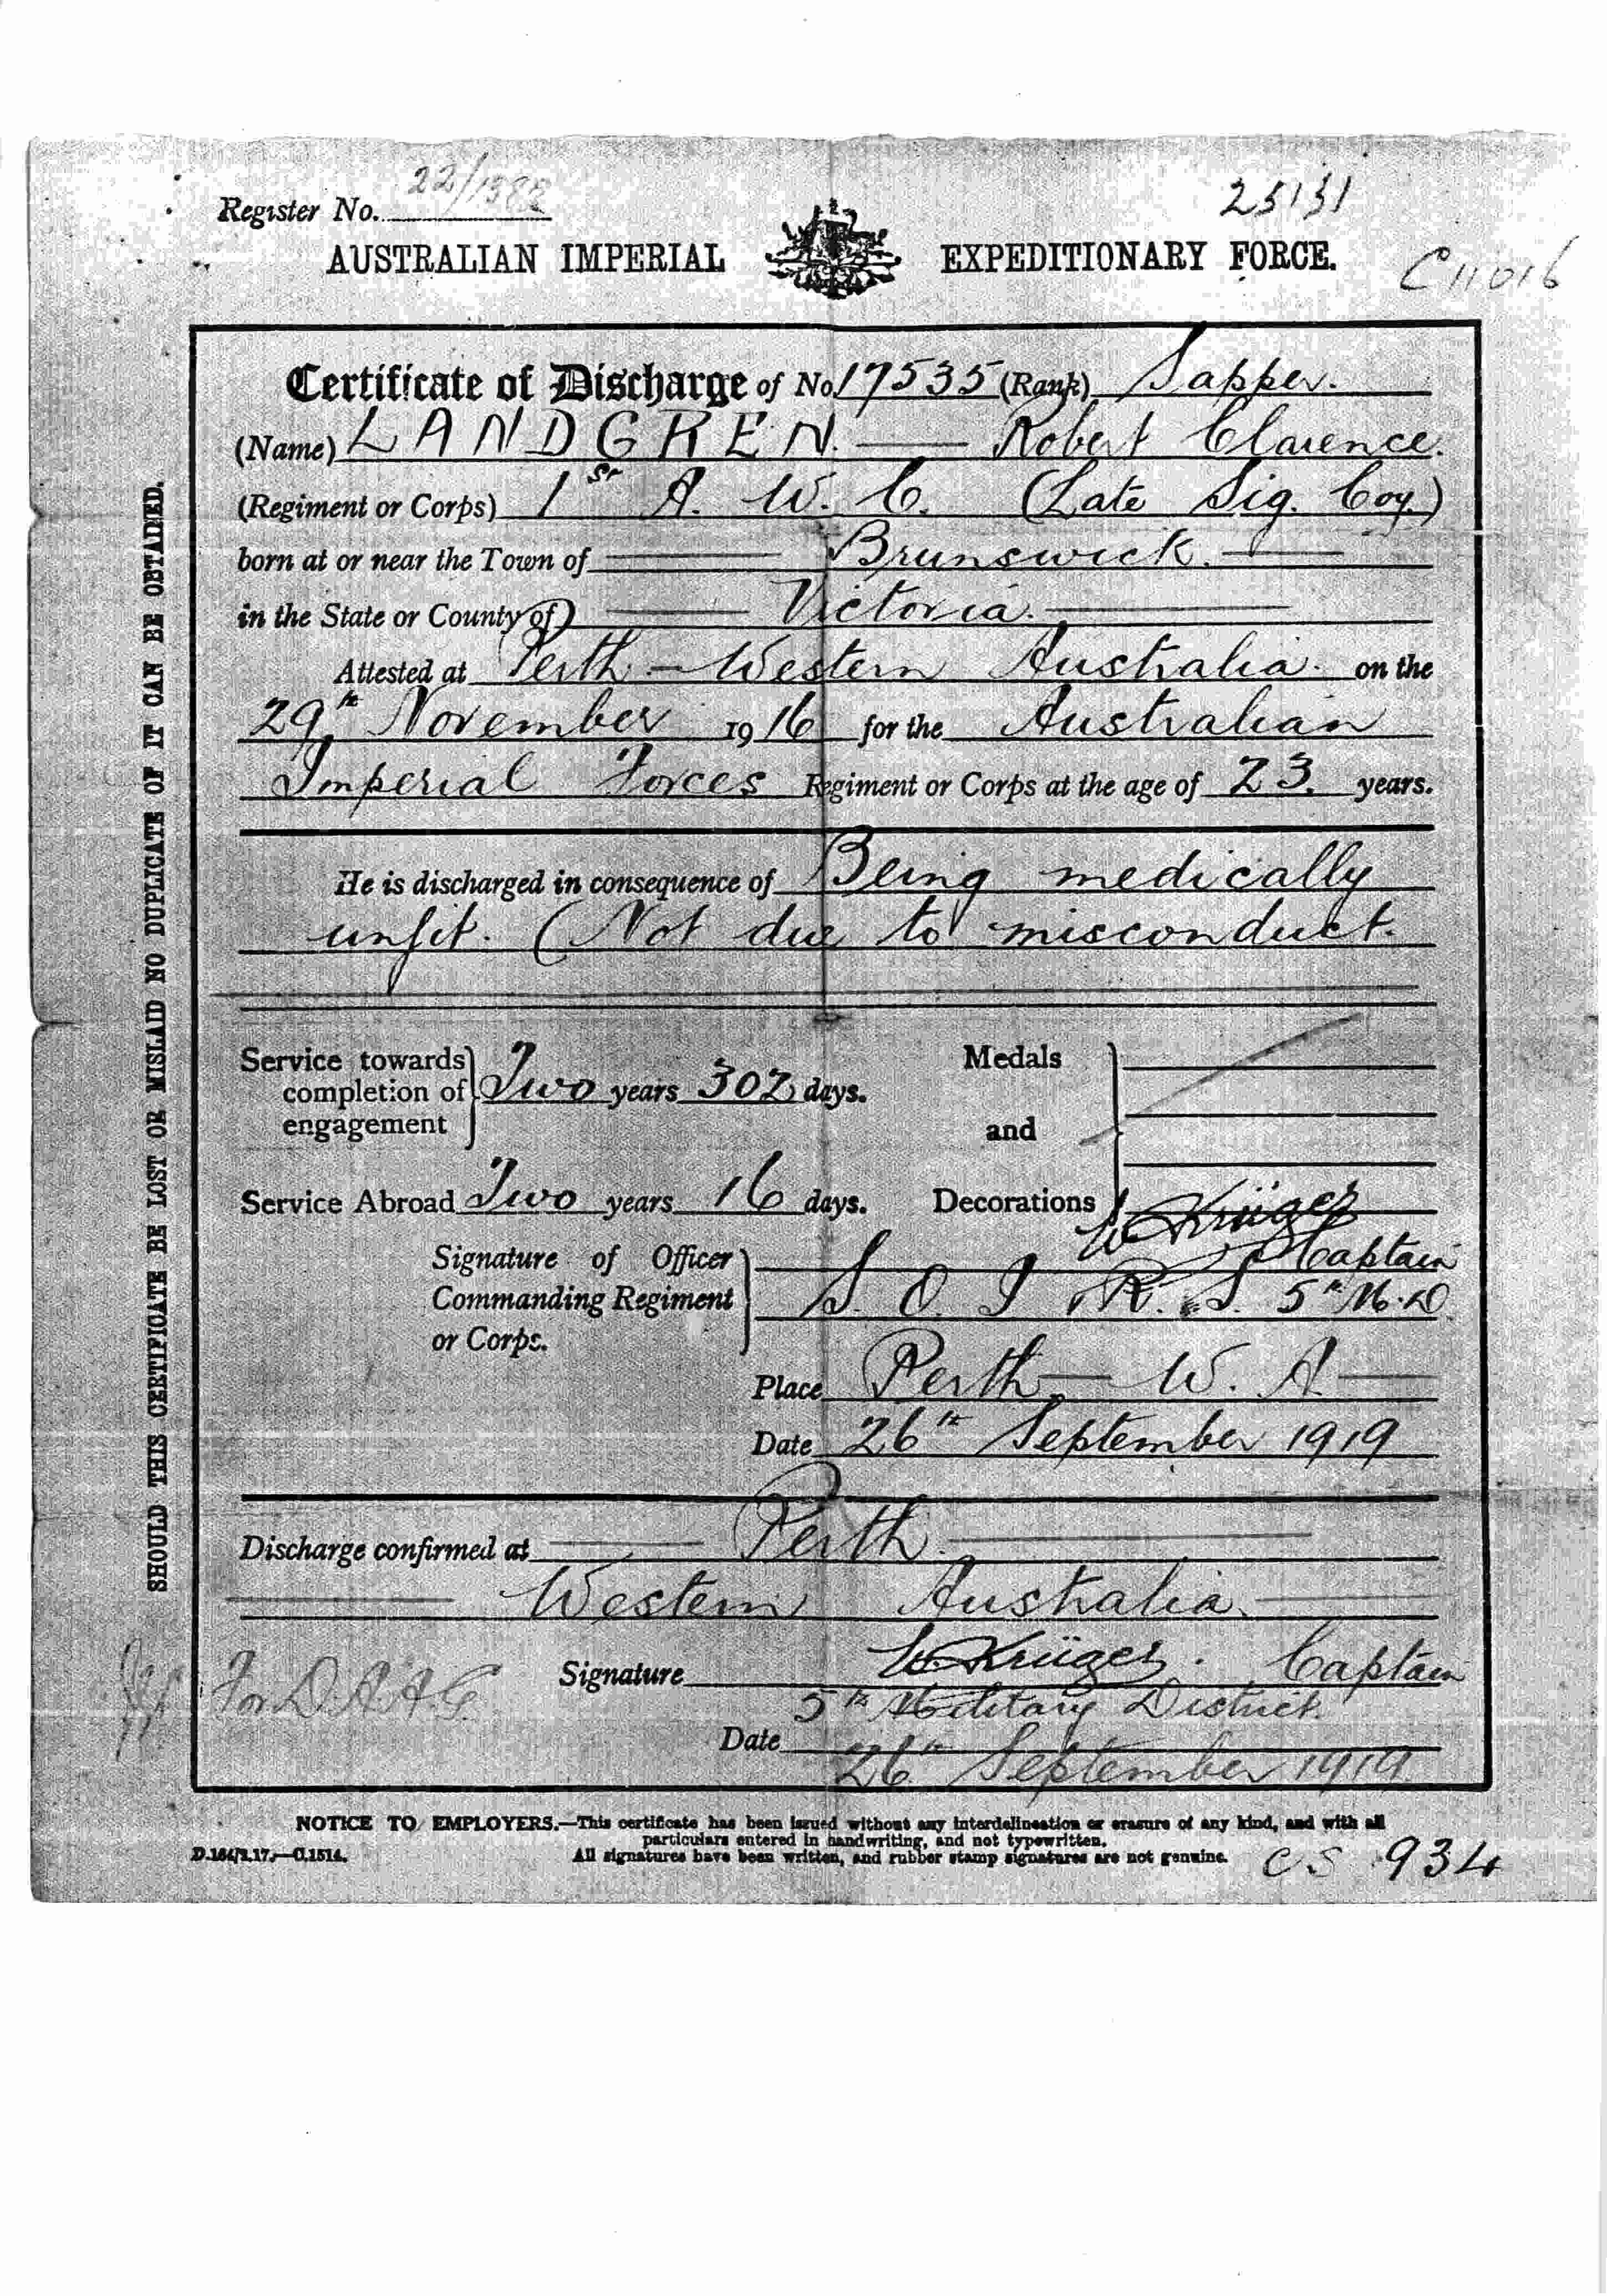 Register No. 22/1988
25131
AUSTRALIAN IMPERIAL EXPEDITIONARY FORCE.
C11016
Certificate of Discharge of No. 17535 (Rank) Sapper.
(Name) LANDGREN. — Robert Clarence.
(Regiment or Corps) 1st A. W. C. (Late Sig. Coy.)
born at or near the Town of Brunswick.
in the State or County of Victoria.
Attested at Perth — Western Australia. on the
29th November 1916 for the Australian
Imperial Forces Regiment or Corps at the age of 23. years.
He is discharged in consequence of Being medically
unfit. (Not due to misconduct.
Service towards completion of engagement Two years 302 days.
Medals and Decorations
Service Abroad Two years 16 days.
Signature of Officer Commanding Regiment or Corps.
W Krüger Captain
S. O. I. & R. S. 5th M.D.
Place Perth, — W. A —
Date 26th September 1919
Discharge confirmed at Perth.
Western Australia.
For D.A.A.G. Signature W. Krüger. Captain
5th Military District.
Date 26th September 1919.
NOTICE TO EMPLOYERS.—This certificate has been issued without any interdelineation or erasure of any kind, and with all
particulars entered in handwriting, and not typewritten.
D.184/2.17.—C.1514. All signatures have been written, and rubber stamp signatures are not genuine.
CS 934
SHOULD THIS CERTIFICATE BE LOST OR MISLAID NO DUPLICATE OF IT CAN BE OBTAINED.